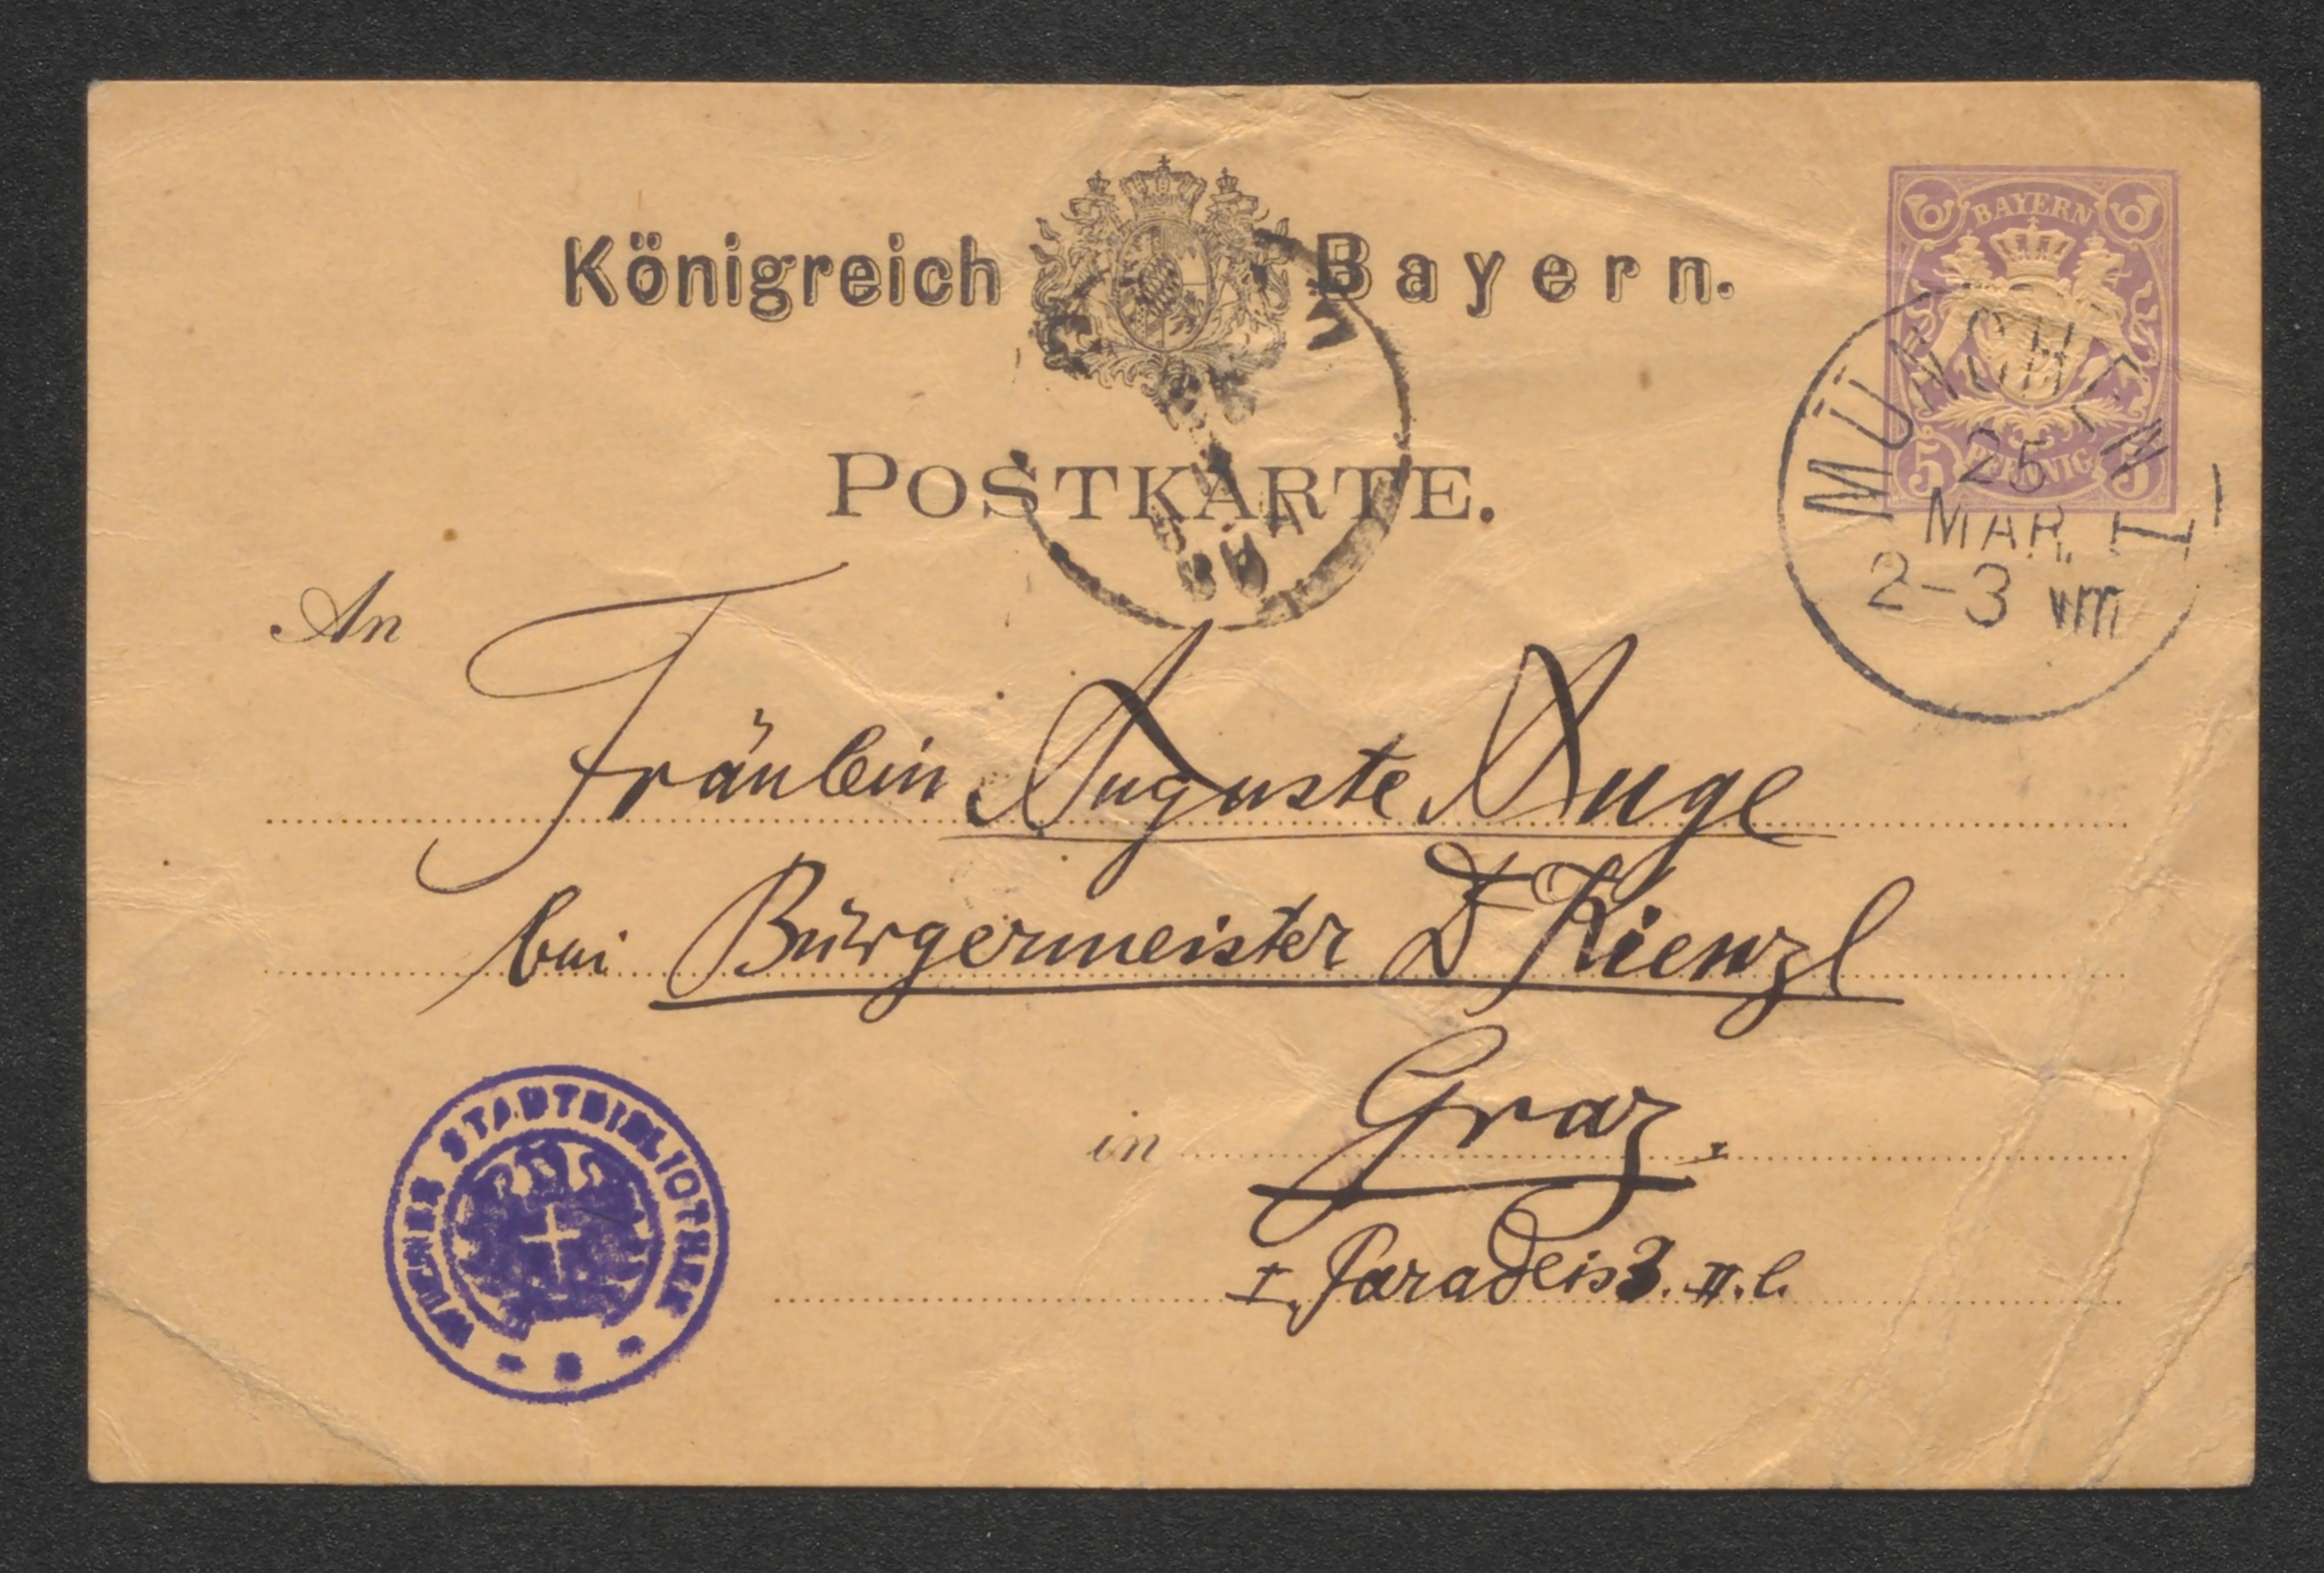 Königreich Bayern.
BAYERN
5 PFENNIG 5
POSTKARTE.
MÜNCHEN I
25
MAR.
2-3 vm
An
Fräulein Auguste Auge
bei Bürgermeister Dr Kienzl
in Graz.
I. Paradeis 3. II. l.
WIENER STADTBIBLIOTHEK